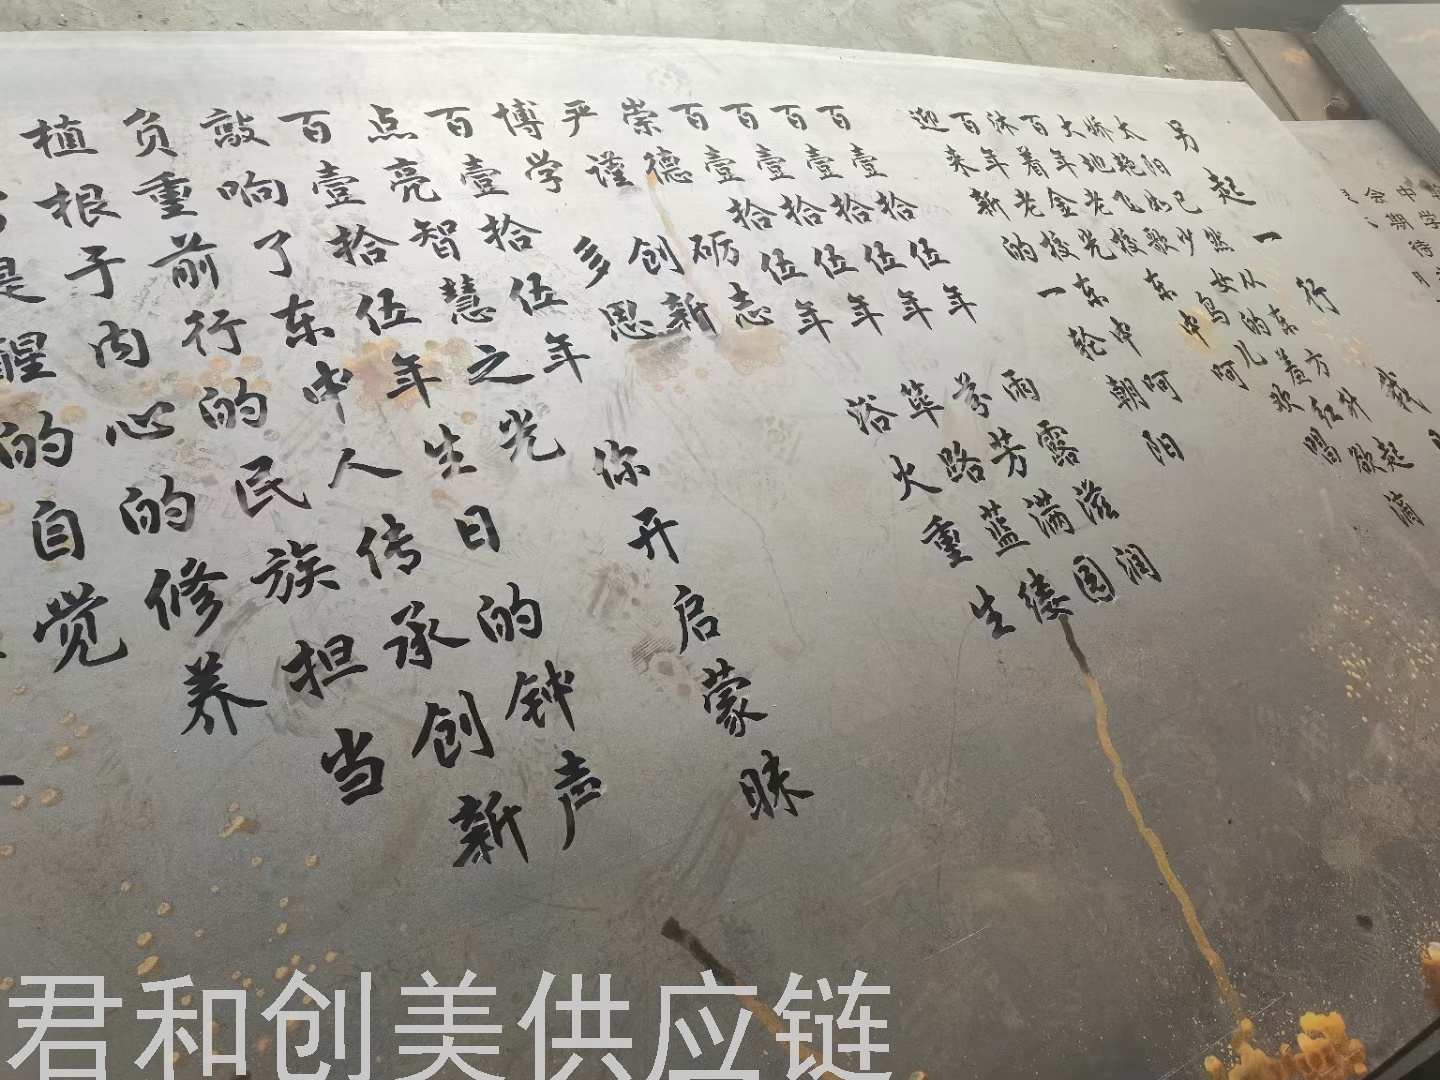 中期待
另起一行
太阳已然从东方升起
大地飞歌鸟儿欢唱
百年老校东中呵
沐着金光
百年老校东中呵
迎来新的一轮朝阳
雨露滋润
芳满园
筚路蓝缕
浴火重生
百壹拾伍年
百壹拾伍年
百壹拾伍年
百壹拾伍年
崇德砺志
严谨创新
博学多思
百壹拾伍年你开启蒙昧
点亮智慧之光
百壹拾伍年生日的钟声
敲响了东中人传承创新
负重前行的民族担当
植根于内心的修养
醒的自觉
君和创美供应链